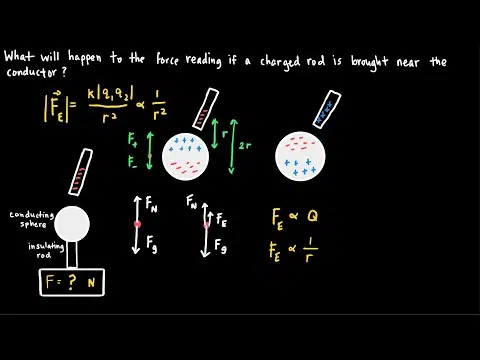 What will happen to the force reading if a charged rod is brought near the
conductor?
|F⃗_E| = k|q₁q₂| / r² ∝ 1/r²
F₊
F₋
r
2r
conducting
sphere
insulating
rod
F = ? N
F_N
F_g
F_N
F_E
F_g
F_E ∝ Q
F_E ∝ 1/r